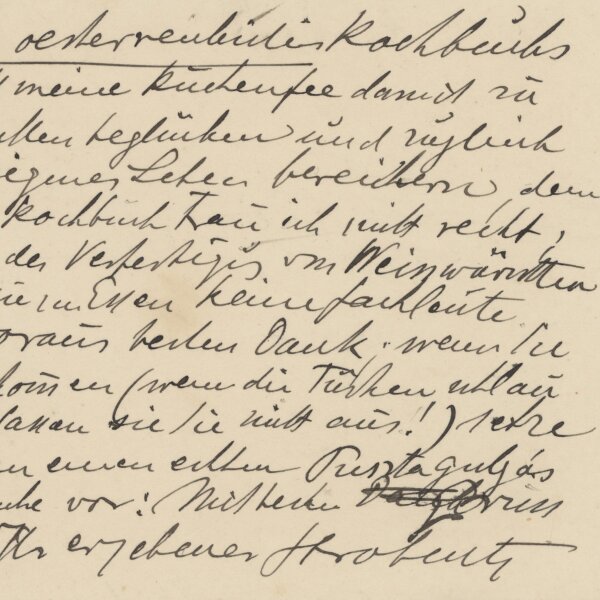 oesterreichisches Kochbuchs
meine Küchenfee damit zu
beglücken und zugleich
eigenes Leben bereichern, dem
Kochbuch trau ich nicht recht,
der Verfertiger von Weisswürsten
in Essen keine Fachleute
voraus besten Dank; wenn Sie
kommen (wenn die Türken schlau
lassen sie Sie nicht aus!) setze
einen echten Pusztagulyás
vor: Mit besten Gruss
Ihr ergebener Strobentz